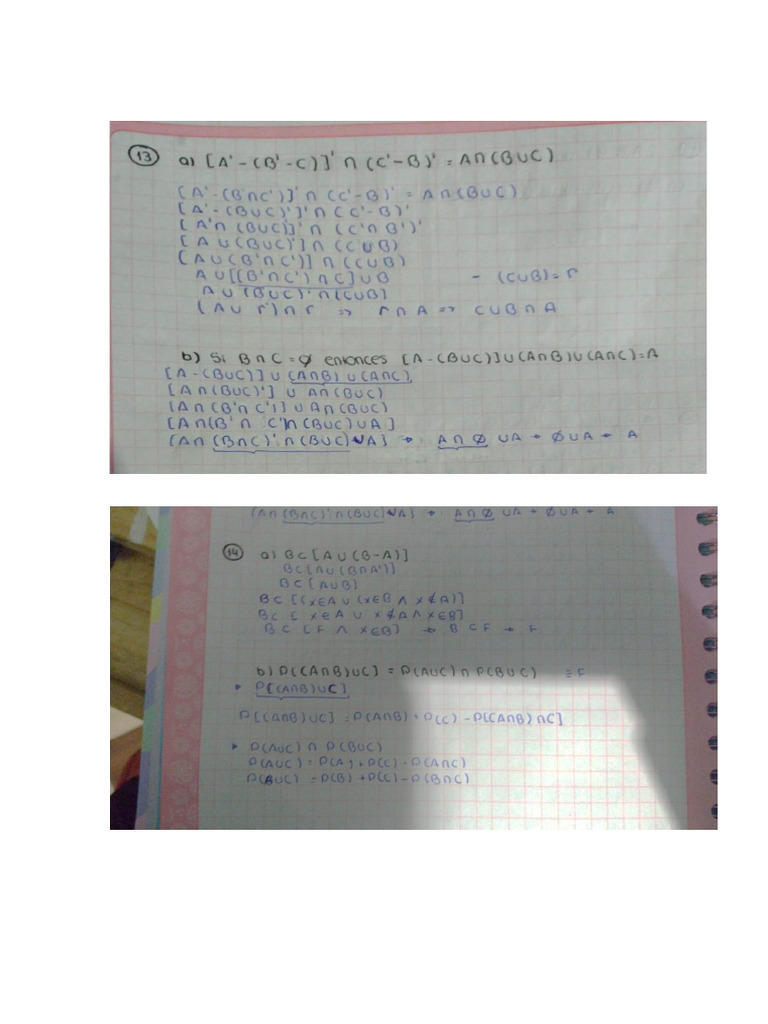 13 a) [A'-(B'-C)]' ∩ (C'-B)' = A∩(B∪C)
[A'-(B'∩C')]' ∩ (C'-B)' = A∩(B∪C)
[A'-(B∪C)']' ∩ (C'-B)'
[A'∩(B∪C)]' ∩ (C'∩B')'
[A∪(B∪C)'] ∩ (C∪B)
[A∪(B'∩C')] ∩ (C∪B)
A∪[(B'∩C')∩C]∪B - (C∪B)=r
A∪(B∪C)'∩(C∪B]
(A∪r')∩r ⇒ r∩A ⇒ C∪B∩A
b) Si B∩C=∅ entonces [A-(B∪C)]∪(A∩B)∪(A∩C)=A
[A-(B∪C)]∪(A∩B)∪(A∩C)
[A∩(B∪C)'] ∪ A∩(B∪C)
[A∩(B'∩C')]∪A∩(B∪C)
[A∩(B'∩C')∩(B∪C)∪A]
(A∩(B∩C)'∩(B∪C)∪A] → A∩∅ ∪A → ∅∪A → A
(A∩(B∩C)'∩(B∪C)∪A] → A∩∅ ∪A → ∅∪A → A
14 a) B⊂[A∪(B-A)]
B⊂[A∪(B∩A')]
B⊂[A∪B]
B⊂[(x∈A∪(x∈B∧x∉A)]
B⊂[x∈A∪x∉A∧x∈B]
B⊂[F∧x∈B] → B⊂F → F
b) P[(A∩B)∪C] = P(A∪C)∩P(B∪C) ≡F
P[(A∩B)∪C]
P[(A∩B)∪C] = P(A∩B)+P(C)-P[(A∩B)∩C]
P(A∪C)∩P(B∪C)
P(A∪C)=P(A)+P(C)-P(A∩C)
P(B∪C)=P(B)+P(C)-P(B∩C)